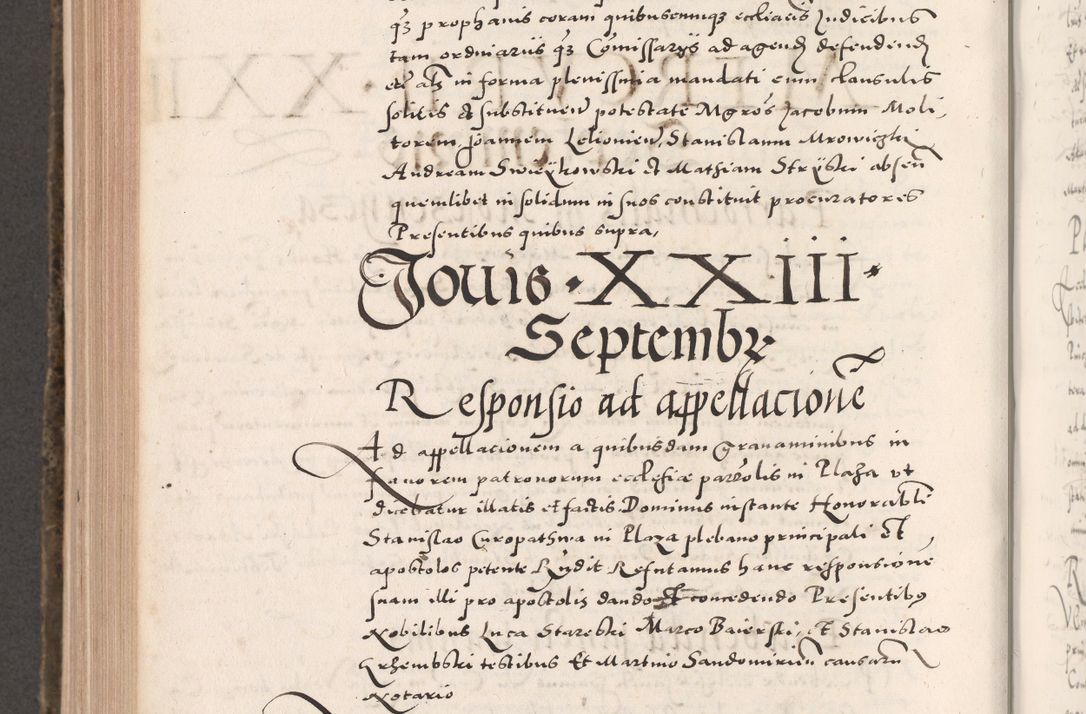 qꝫ prophanis coram quibuscumqꝫ eccliacis Judicibus
tam ordinariis qꝫ Comissarys ad agend defendend
etc alꝫ in forma plenissima mandati cum clausulis
solitis et substituen potestate Mgros Jacobum Moli
torem, Joannem Lelioniem, Stanislaum Mrowiczki
Andream Swiezykowski et Mathiam Stryski absen
quemlibet in solidum in suos constituit procuratores
Presentibus quibus supra,
Jouis · XXIII ·
Septembr
Responsio ad appellacione
Ad appellacionem a quibusdam grauaminibus in
fauorem patronorum ecclesiae paroolis in Plaza vt
dicebatur illatis et factis Dominus instante Honorabli
Stanislao Curopathwa in Plaza plebano principali et
apostolos petente Rndit Refutamus hanc responsione
suam illi pro apostolis dando et concedendo Presentibꝰ
Nobilibus Luca Starebski Marco Baierski, et Stanislao
Grzembski testibus Et Martino Sandomirien causarum
Notario